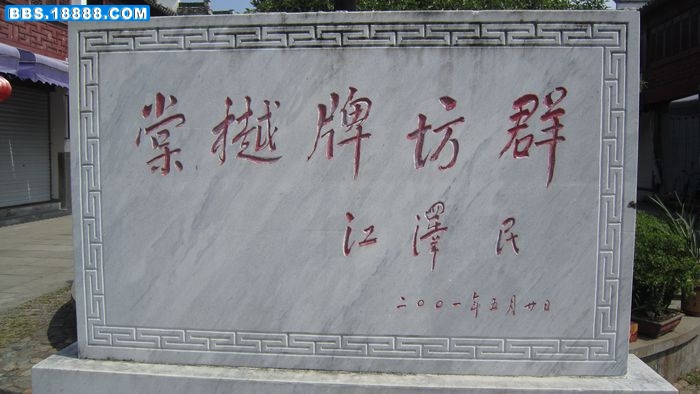 BBS.18888.COM
棠樾牌坊群
江澤民
二〇〇一年五月廿日